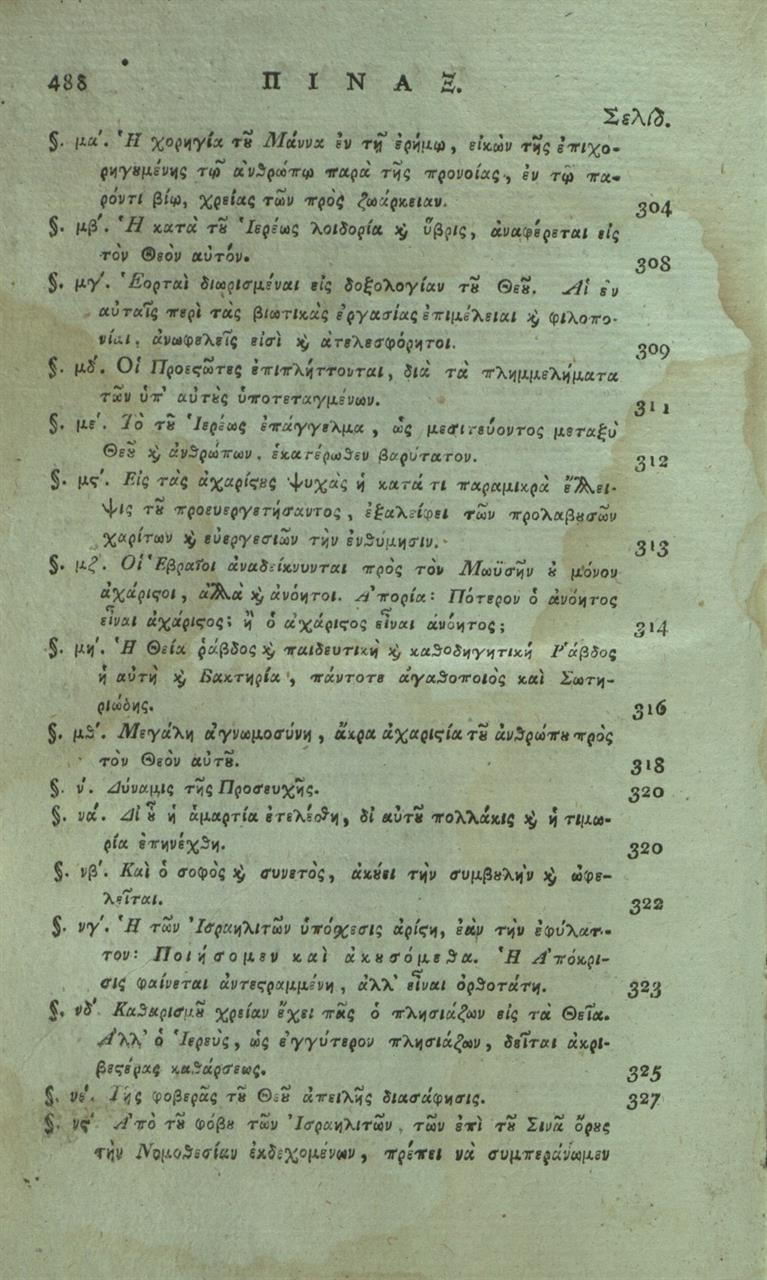 488 ΠΙΝΑΞ.
Σελίδ.
§. μα΄. Ἡ χορηγία τȣ̃ Μάννα ἐν τῇ ἐρήμῳ, εἰκὼν τῆς ἐπιχο-
ρηγȣμένης τῷ ἀνθρώπῳ παρὰ τῆς προνοίας, ἐν τῷ πα-
ρόντι βίῳ, χρείας τῶν πρὸς ζωάρκειαν. 304
§. μβ΄. Ἡ κατὰ τȣ̃ Ἱερέως λοιδορία ϗ ὕβρις, ἀναφέρεται εἰς
τὸν Θεὸν αὐτόν. 308
§. μγ΄. Ἑορταὶ διωρισμέναι εἰς δοξολογίαν τȣ̃ Θεȣ̃. Αἱ ἐν
αὐταῖς περὶ τὰς βιωτικὰς ἐργασίας ἐπιμέλειαι ϗ φιλοπο-
νίαι, ἀνωφελεῖς εἰσὶ ϗ ἀτελεσφόρητοι. 309
§. μδ΄. Οἱ Προεϛῶτες ἐπιπλήττονται, διὰ τὰ πλημμελήματα
τῶν ὑπ' αὐτȣ̀ς ὑποτεταγμένων. 311
§. με΄. Τὸ τȣ̃ Ἱερέως ἐπάγγελμα, ὡς μεσιτεύοντος μεταξὺ
Θεȣ̃ ϗ ἀνθρώπων, ἑκατέρωθεν βαρύτατον. 312
§. μϛ΄. Εἰς τὰς ἀχαρίϛȣς ψυχὰς ἡ κατά τι παραμικρὰ ἔλλει-
ψις τȣ̃ προευεργετήσαντος, ἐξαλείφει τῶν προλαβȣσῶν
χαρίτων ϗ εὐεργεσιῶν τὴν ἐνθύμησιν. 313
§. μζ΄. Οἱ Ἑβραῖοι ἀναδείκνυνται πρὸς τὸν Μωϋσῆν ȣ̓ μόνον
ἀχάριϛοι, ἀλλὰ ϗ ἀνόητοι. Ἀπορία: Πότερον ὁ ἀνόητος
εἶναι ἀχάριϛος; ἢ ὁ ἀχάριϛος εἶναι ἀνόητος; 314
§. μη΄. Ἡ Θεία ῥάβδος ϗ παιδευτικὴ ϗ καθοδηγητικὴ Ῥάβδος
ἡ αὐτὴ ϗ Βακτηρία, πάντοτε ἀγαθοποιὸς καὶ Σωτη-
ριώδης. 316
§. μθ΄. Μεγάλη ἀγνωμοσύνη, ἄκρα ἀχαριϛία τȣ̃ ἀνθρώπȣ πρὸς
τὸν Θεὸν αὐτȣ̃. 318
§. ν΄. Δύναμις τῆς Προσευχῆς. 320
§. να΄. Δι' ȣ̃ ἡ ἁμαρτία ἐτελέσθη, δι' αὐτȣ̃ πολλάκις ϗ ἡ τιμω-
ρία ἐπηνέχθη. 320
§. νβ΄. Καὶ ὁ σοφὸς ϗ συνετὸς, ἀκȣ́ει τὴν συμβȣλὴν ϗ ὠφε-
λεῖται. 322
§. νγ΄. Ἡ τῶν Ἰσραηλιτῶν ὑπόχεσις ἀρίϛη, ἐὰν τὴν ἐφύλατ-
τον: Ποιήσομεν καὶ ἀκȣσόμεθα. Ἡ Ἀπόκρι-
σις φαίνεται ἀντεϛραμμένη, ἀλλ' εἶναι ὀρθοτάτη. 323
§. νδ΄. Καθαρισμȣ̃ χρείαν ἔχει πᾶς ὁ πλησιάζων εἰς τὰ Θεῖα.
Ἀλλ' ὁ Ἱερεὺς, ὡς ἐγγύτερον πλησιάζων, δεῖται ἀκρι-
βεϛέρας καθάρσεως. 325
§. νε΄. Τῆς φοβερᾶς τȣ̃ Θεȣ̃ ἀπειλῆς διασάφησις. 327
§. νϛ΄. Ἀπὸ τȣ̃ φόβȣ τῶν Ἰσραηλιτῶν, τῶν ἐπὶ τȣ̃ Σινᾶ ὄρȣς
τὴν Νομοθεσίαν ἐκδεχομένων, πρέπει νὰ συμπεράνωμεν